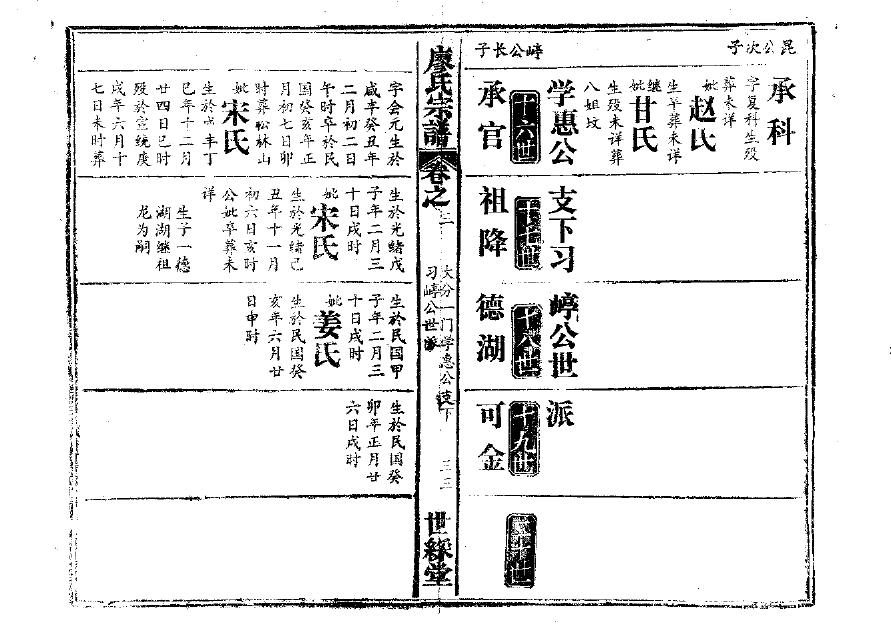 昆公次子
承科
字复科生殁
葬未详
妣赵氏
生羊葬未详
继妣甘氏
生殁未详葬
八姐坟
学惠公
支下习
㠉公世
派
十六世
十七世
十八世
十九世
㠉公长子
承官
祖降
德湖
可金
廖氏宗譜
卷之三
大分一门学惠公支下
习㠉公世派
三三
世綵堂
字会元生於
咸丰癸丑年
二月初二日
午时卒於民
国癸亥年正
月初七日卯
时葬松林山
妣宋氏
生於咸丰丁
巳年十二月
廿四日巳时
殁於宣统庚
戌年六月十
七日未时葬
生於光绪戊
子年二月三
十日戌时
妣宋氏
生於光绪己
丑年十一月
初六日亥时
公妣卒葬未
详
生子一德
湖湖继祖
龙为嗣
生於民国甲
子年二月三
十日戌时
妣姜氏
生於民国癸
亥年六月廿
日申时
生於民国癸
卯年正月廿
六日戌时